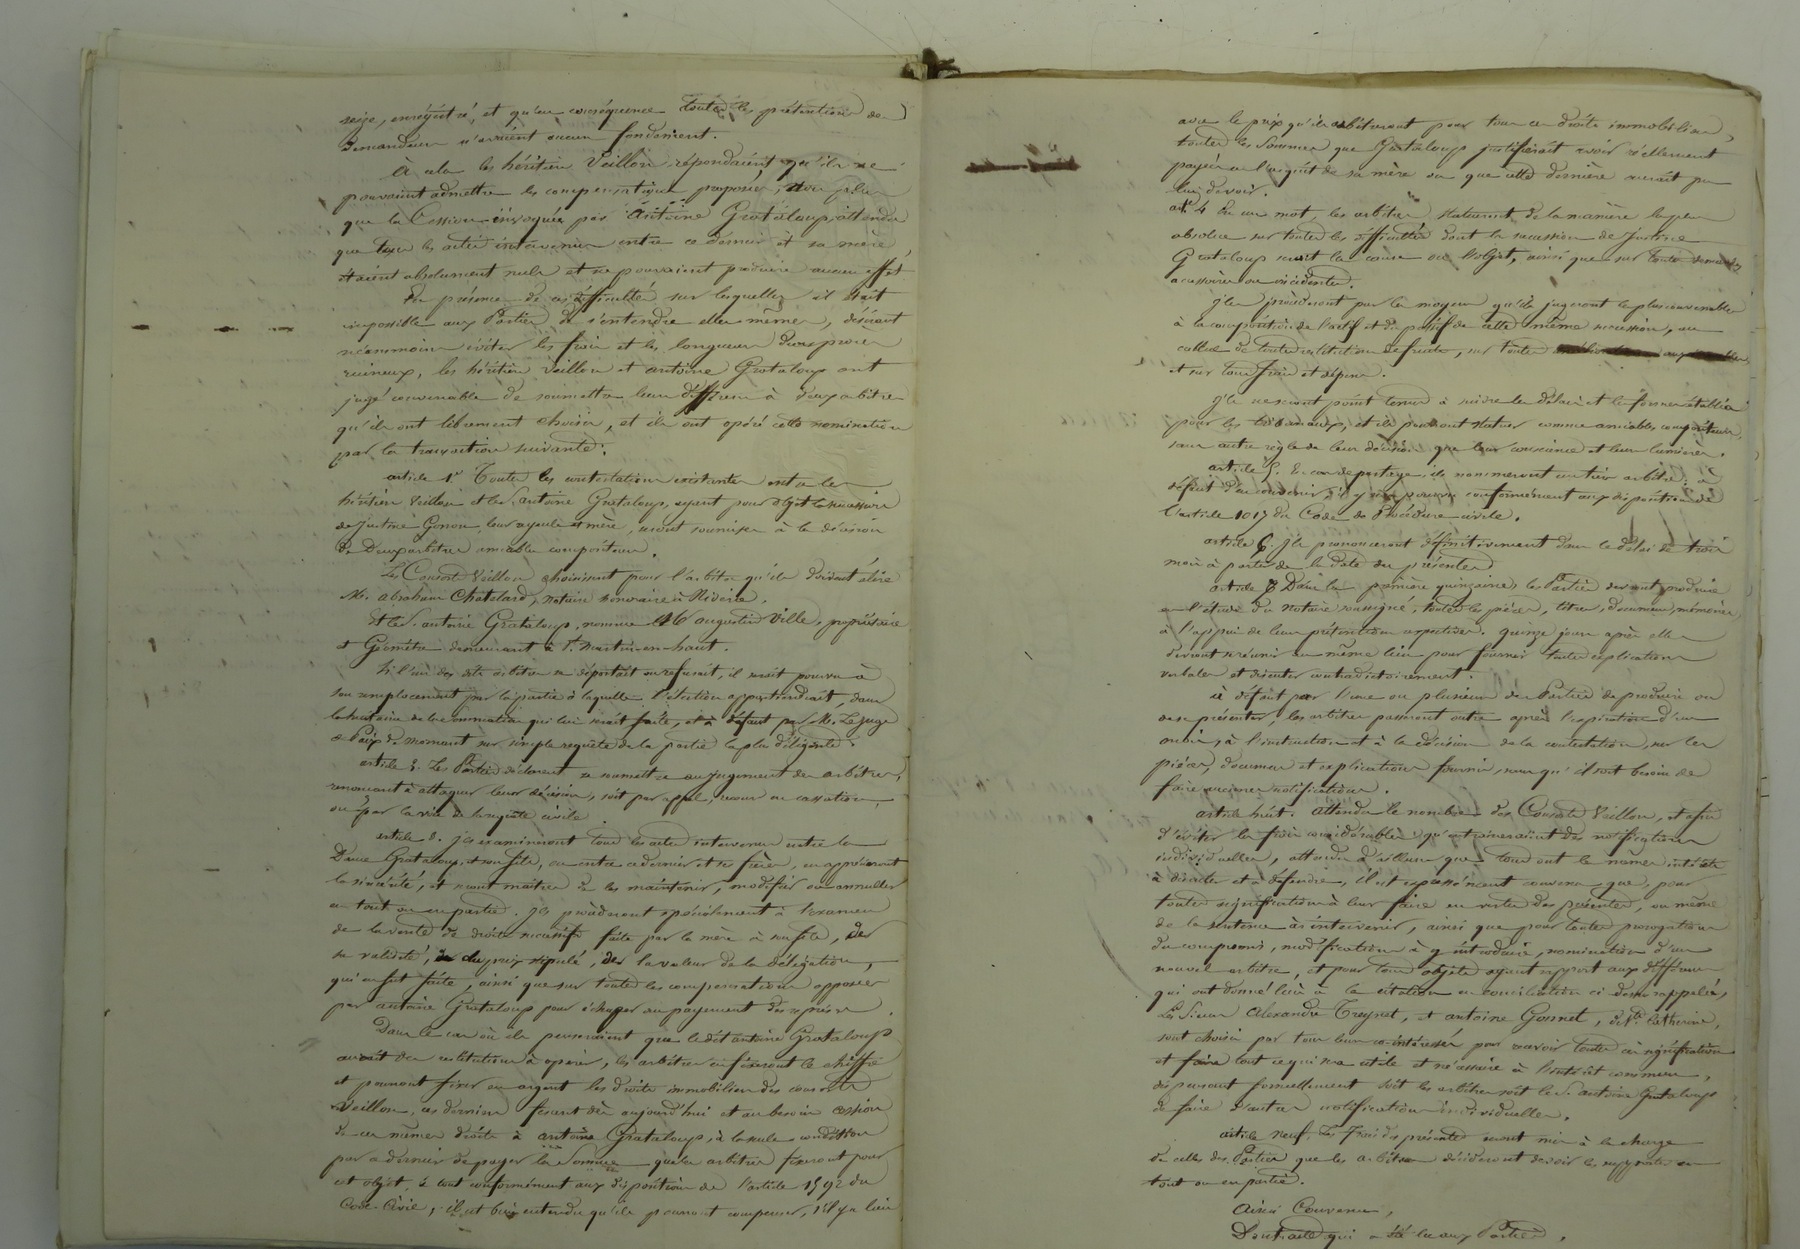 seize, enrégistré, et qu'en conséquence toutes les prétentions des
demandeurs n'avaient aucun fondement.
À cela les héritiers Veillon répondaient, qu'ils ne
pouvaient admettre les compensations proposées, non plus
que la Cession invoquée par Antoine Grataloup, attendu
que tous les actes intervenus entre ce dernier et sa mère,
étaient absolument nuls et ne pouvaient produire aucun effet
En présence de ces difficultés sur lesquelles il était
impossible aux Parties de s'entendre elles mêmes, désirant
néanmoins éviter les frais et les longueurs d'un procès
ruineux, les héritiers Veillon et antoine Grataloup ont
jugé convenable de soumettre leurs différens à deux arbitres
qu'ils ont librement choisis, et ils ont opéré cette nomination
par la transaction suivante:
article 1er Toutes les contestations existantes entre les
héritiers Veillon et le s. antoine Grataloup, ayant pour objet la succession
de Justine Gonon, leur ayeule et mère, seront soumises à la décision
de Deux arbitres amiables compositeurs.
Les Consorts Veillon choisissent pour l'arbitre qu'ils doivent élire
M. abraham Chatelard, notaire honoraire à Riverie.
Et le s. antoine Grataloup, nomme M. augustin Ville, propriétaire
et Géomètre demeurant à St. Martin-en-haut.
Si l'un des dits arbitres se déportait ou refusait, il serait pourvu à
son remplacement par la partie à laquelle l'élection appartiendrait, dans
la huitaine de la sommation qui lui serait faite, et à défaut par M. Le Juge
de Paix de mornant sur simple requête de la partie la plus diligente.
article 2. Les Parties déclarent se soumettre au jugement des arbitres,
renonçant à attaquer leur décision, soit par appel, recours en cassation,
ou par la voie de la requête civile.
article 3. Ils examineront tous les actes intervenus entre la
Dame Grataloup et son fils, ou entre ce dernier et ses frères, en apprécieront
la sincérité, et seront maîtres de les maintenir, modifier ou annuller
en tout ou en partie. Ils procèderont spécialement à l'examen
de la vente de droits successifs faite par la mère à son fils, de
sa validité, du prix stipulé, de la valeur de la délégation,
qui en fut faite, ainsi que sur toutes les compensations opposées
par antoine Grataloup pour échaper au payement des reprises.
Dans le cas où ils penseraient que le dit antoine Grataloup
aurait des restitutions à opérer, les arbitres en fixeront le chiffre
et pourront fixer en argent les droits immobiliers des consorts
Veillon, ces derniers fesant dès aujourd'hui et au besoin cession
de ces mêmes droits à antoine Grataloup, à la seule condition
par ce dernier de payer la Somme que les arbitres fixeront pour
cet objet, le tout conformément aux dispositions de l'article 1592 du
Code Civil; il est bien entendu qu'ils pourront compenser, s'il y a lieu
avec le prix qu'ils arbitreront pour tous ces droits immobiliers,
toutes les Sommes que Grataloup justifierait avoir réellement
payées à l'acquit de sa mère ou que cette dernière aurait pu
lui devoir.
art. 4 En un mot, les arbitres statueront de la manière la plus
absolue sur toutes les difficultés dont la succession de Justine
Grataloup serait la cause ou l'objet, ainsi que sur toute demande
accessoire ou incidente.
Ils procèderont par les moyens qu'ils jugeront le plus convenable
à la composition de l'actif et du passif de cette même succession, au
calcul de toutes restitutions de fruits, sur toutes
et sur tous frais et dépens.
Ils ne seront point tenus à suivre les délais et les formes établies
pour les tribunaux, et ils pourront statuer comme amiables compositeurs,
sans autre règle de leur décision que leur conscience et leurs lumières.
article 5. En cas de partage, ils nommeront un tiers arbitre: à
défaut d'en convenir, il y sera pourvu conformément aux dispositions de
l'article 1017 du Code de Procédure civile.
article 6 Ils prononceront définitivement dans le délai de trois
mois à partir de la date des présentes
article 7 Dans la première quinzaine les Parties devront produire
en l'étude du Notaire soussigné, toutes les pièces, titres, documens, mémoires
à l'appui de leurs prétentions respectives. quinze jours après elles
devront se réunir au même lieu pour fournir toutes explications
verbales et discuter contradictoirement.
à défaut par l'une ou plusieurs des Parties de produire ou
de se présenter, les arbitres passeront outre après l'expiration d'un
mois, à l'instruction et à la décision de la contestation, sur les
pièces, documens et explications fournies, sans qu'il soit besoin de
faire aucunes notifications.
article huit. Attendu le nombre des Consorts Veillon, et afin
d'éviter les frais considérables qu'entraineraient des notifications
individuelles, attendu d'ailleurs que tous ont le même intérêt
à discuter et à défendre, il est expressément convenu que, pour
toutes significations à leur faire en vertu des présentes, ou même
de la sentence à intervenir, ainsi que pour toutes prorogations
du compromis, modifications à y introduire, nomination d'un
nouvel arbitre, et pour tous objets ayant rapport aux différens
qui ont donné lieu à la citation en conciliation ci dessus rappelée,
Les Sieurs Alexandre Treynet, et antoine Gonnet, de Ste Catherine,
sont choisis par tous leurs co-intéressés pour recevoir toutes ces significations
et faire tout ce qui sera utile et nécessaire à l'intérêt commun,
dispensant formellement soit les arbitres soit le s. antoine Grataloup
de faire d'autres notifications individuelles.
article neuf. Les Frais des présentes seront mis à la charge
de celles des Parties que les arbitres décideront devoir les supporter en
tout ou en partie.
Ainsi Convenu,
Dont acte qui a été lu aux Parties,